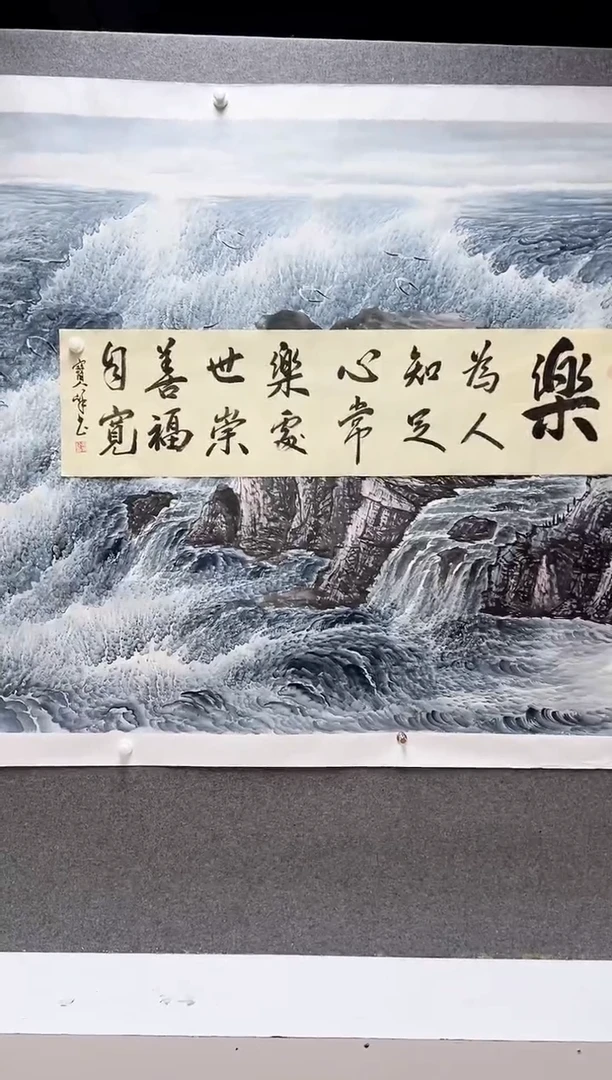 樂
為人
知足
心常
樂處
世崇
善福
自寬
寶峰书